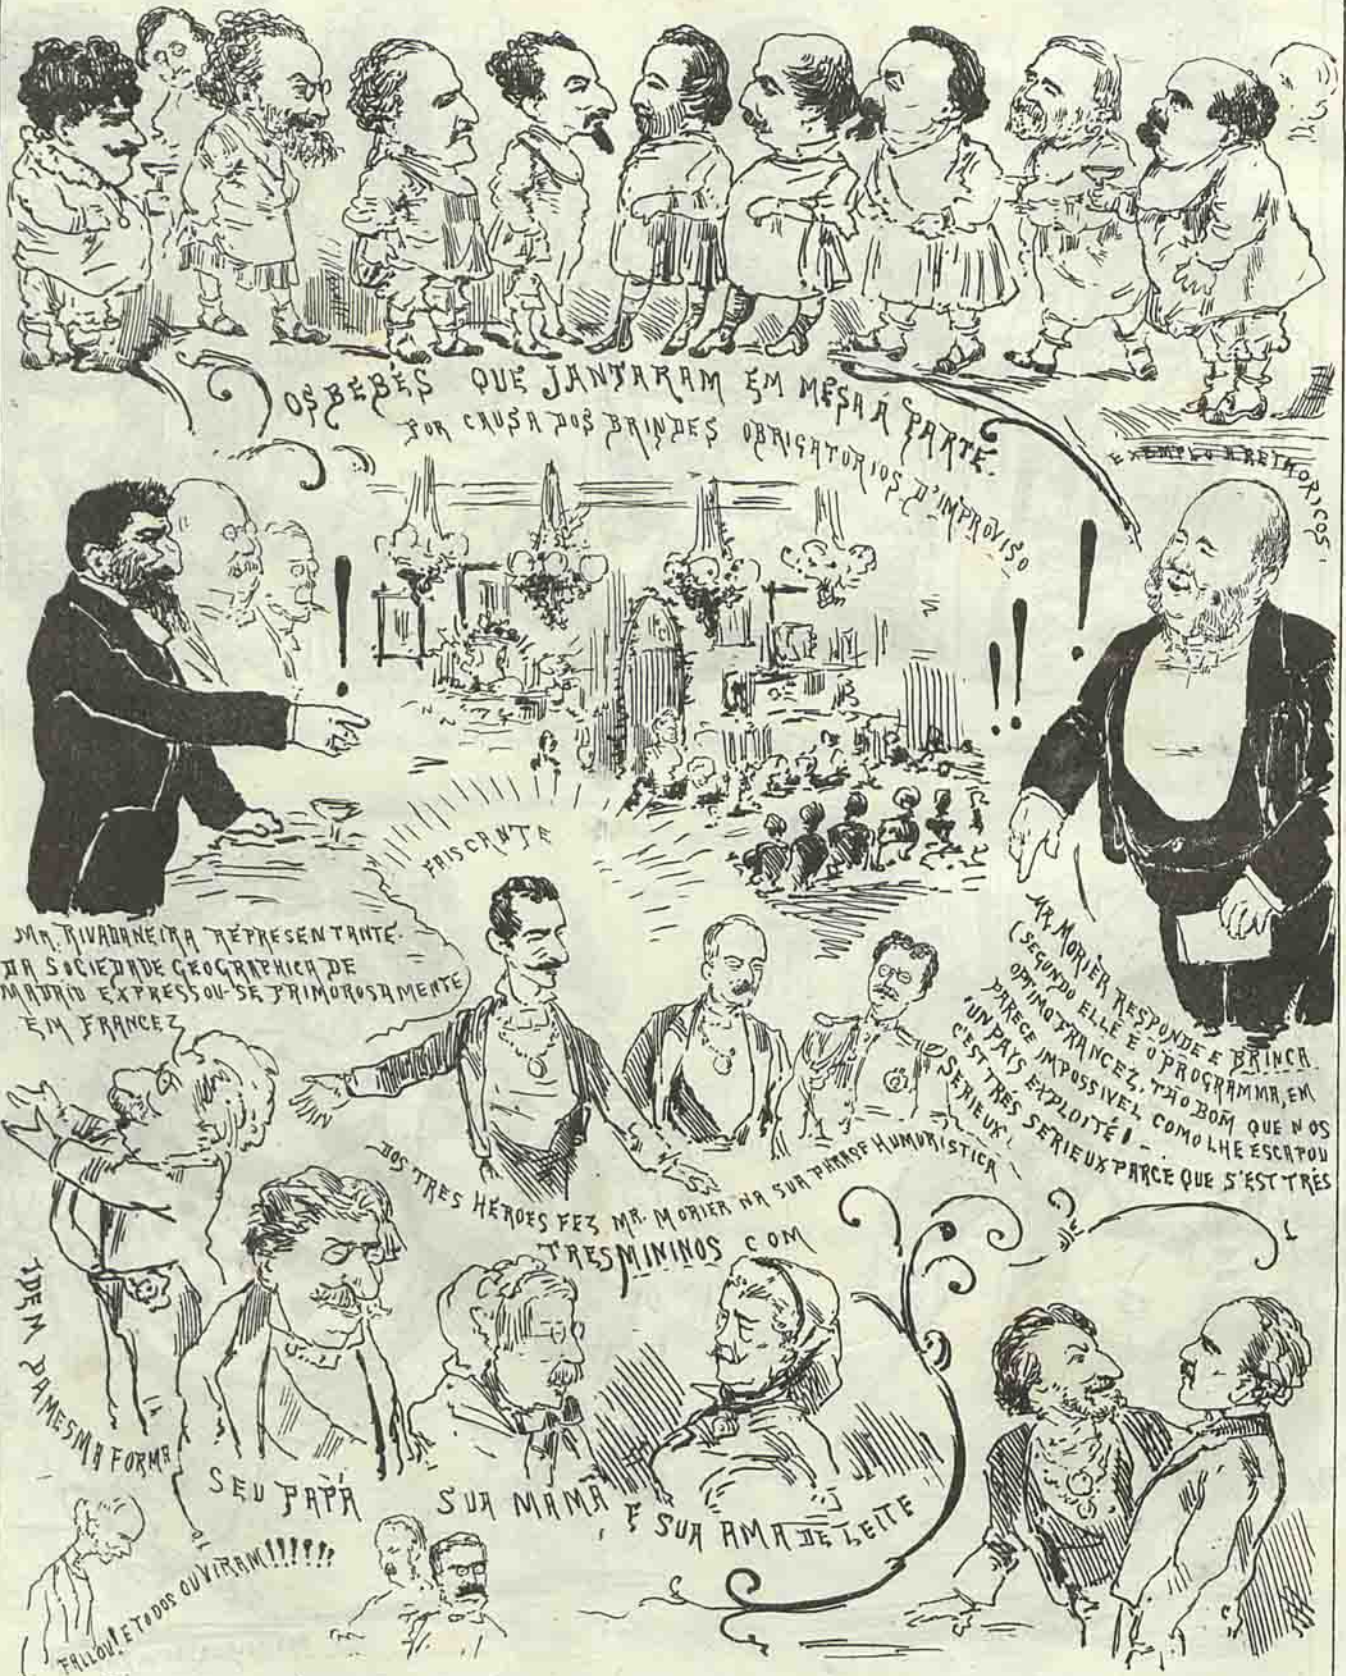 OS BÉBÉS QUE JANTARAM EM MESA Á PARTE.
POR CAUSA DOS BRINDES OBRIGATORIOS D'IMPROVISO
EXEMPLO A RETHORICOS.
FAISCANTE
MR. RIVADANEIRA REPRESENTANTE.
DA SOCIEDADE GEOGRAPHICA DE
MADRID EXPRESSOU-SE PRIMOROSAMENTE
EM FRANCEZ
MR. MORIER RESPONDE E BRINCA.
(SEGUNDO ELLE É O PROGRAMMA, EM
OPTIMO FRANCEZ. TÃO BOM QUE NOS
PARECE IMPOSSIVEL COMO LHE ESCAPOU
"UN PAYS EXPLOITÉ! -
C'EST TRÉS SERIEUX PARCE QUE S'EST TRÉS
SERIEUX.
DOS TRES HÉROES FEZ MR. MORIER NA SUA PHRASE HUMORISTICA
TRES MININOS COM
IDEM DA MESMA FORMA
SEU PAPÁ
SUA MAMÃ
E SUA AMA DE LEITE
FALLOU! E TODOS OUVIRAM!!!!!!!